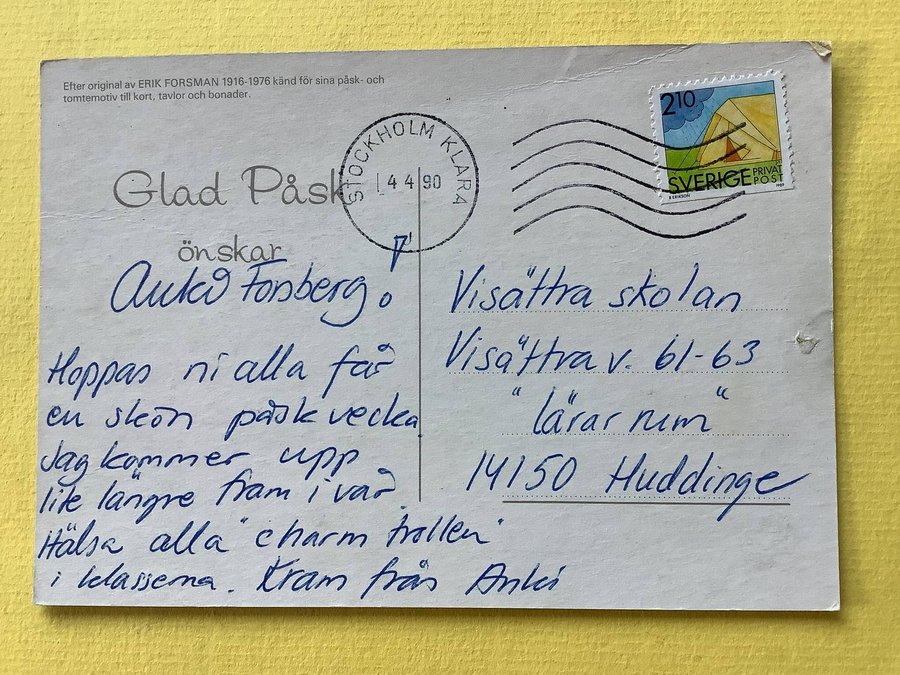 Efter original av ERIK FORSMAN 1916-1976 känd för sina påsk- och
tomtemotiv till kort, tavlor och bonader.
STOCKHOLM KLARA
4 4 90
2 10
SVERIGE PRIVAT
POST
1989
Glad Påsk
önskar
Anki Forsberg!
Hoppas ni alla får
en skön påskvecka
Jag kommer upp
lite längre fram i vår
Hälsa alla "charmtrollen"
i klasserna. Kram från Anki
Visättra skolan
Visättra v. 61-63
"lärar rum"
14150 Huddinge